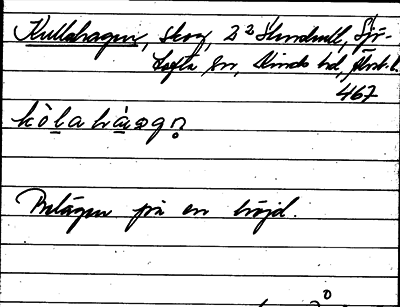 Kullahagen, skog, 2 2 Strandvall, Sjö-
tofta sn, Kinds hd, Älvsb. l.
467
kòlahà
Belägen på en höjd.